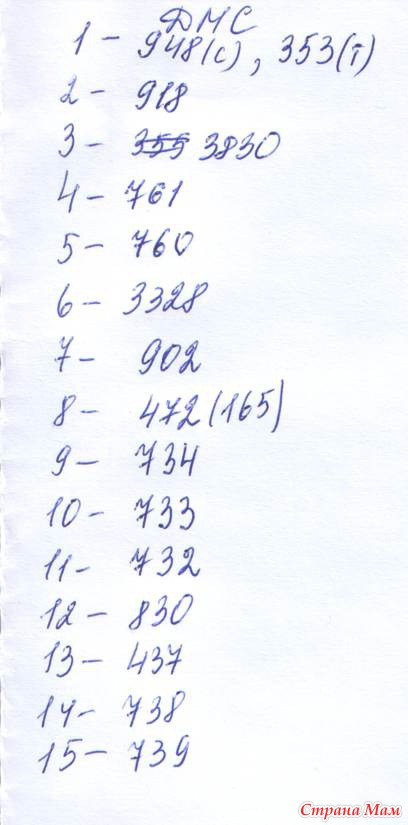 ДМС
1 - 948(с), 353(т)
2 - 918
3 - 355 3830
4 - 761
5 - 760
6 - 3328
7 - 902
8 - 472(165)
9 - 734
10 - 733
11 - 732
12 - 830
13 - 437
14 - 738
15 - 739
Страна Мам